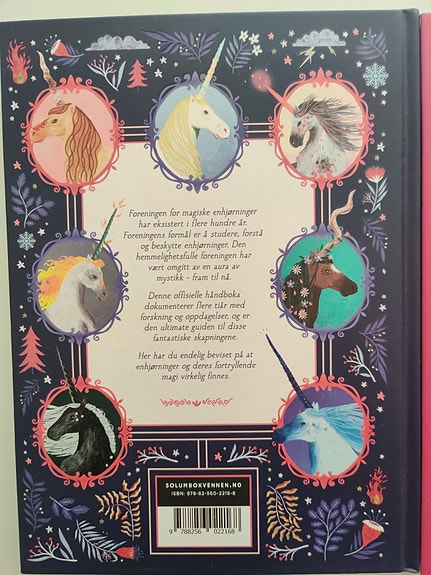 Foreningen for magiske enhjørninger
har eksistert i flere hundre år.
Foreningens formål er å studere, forstå
og beskytte enhjørninger. Den
hemmelighetsfulle foreningen har
vært omgitt av en aura av
mystikk - fram til nå.
Denne offisielle håndboka
dokumenterer flere tiår med
forskning og oppdagelser, og er
den ultimate guiden til disse
fantastiske skapningene.
Her har du endelig beviset på at
enhjørninger og deres fortryllende
magi virkelig finnes.
SOLUMBOKVENNEN.NO
ISBN: 978-82-560-2216-8
9 788256 022168